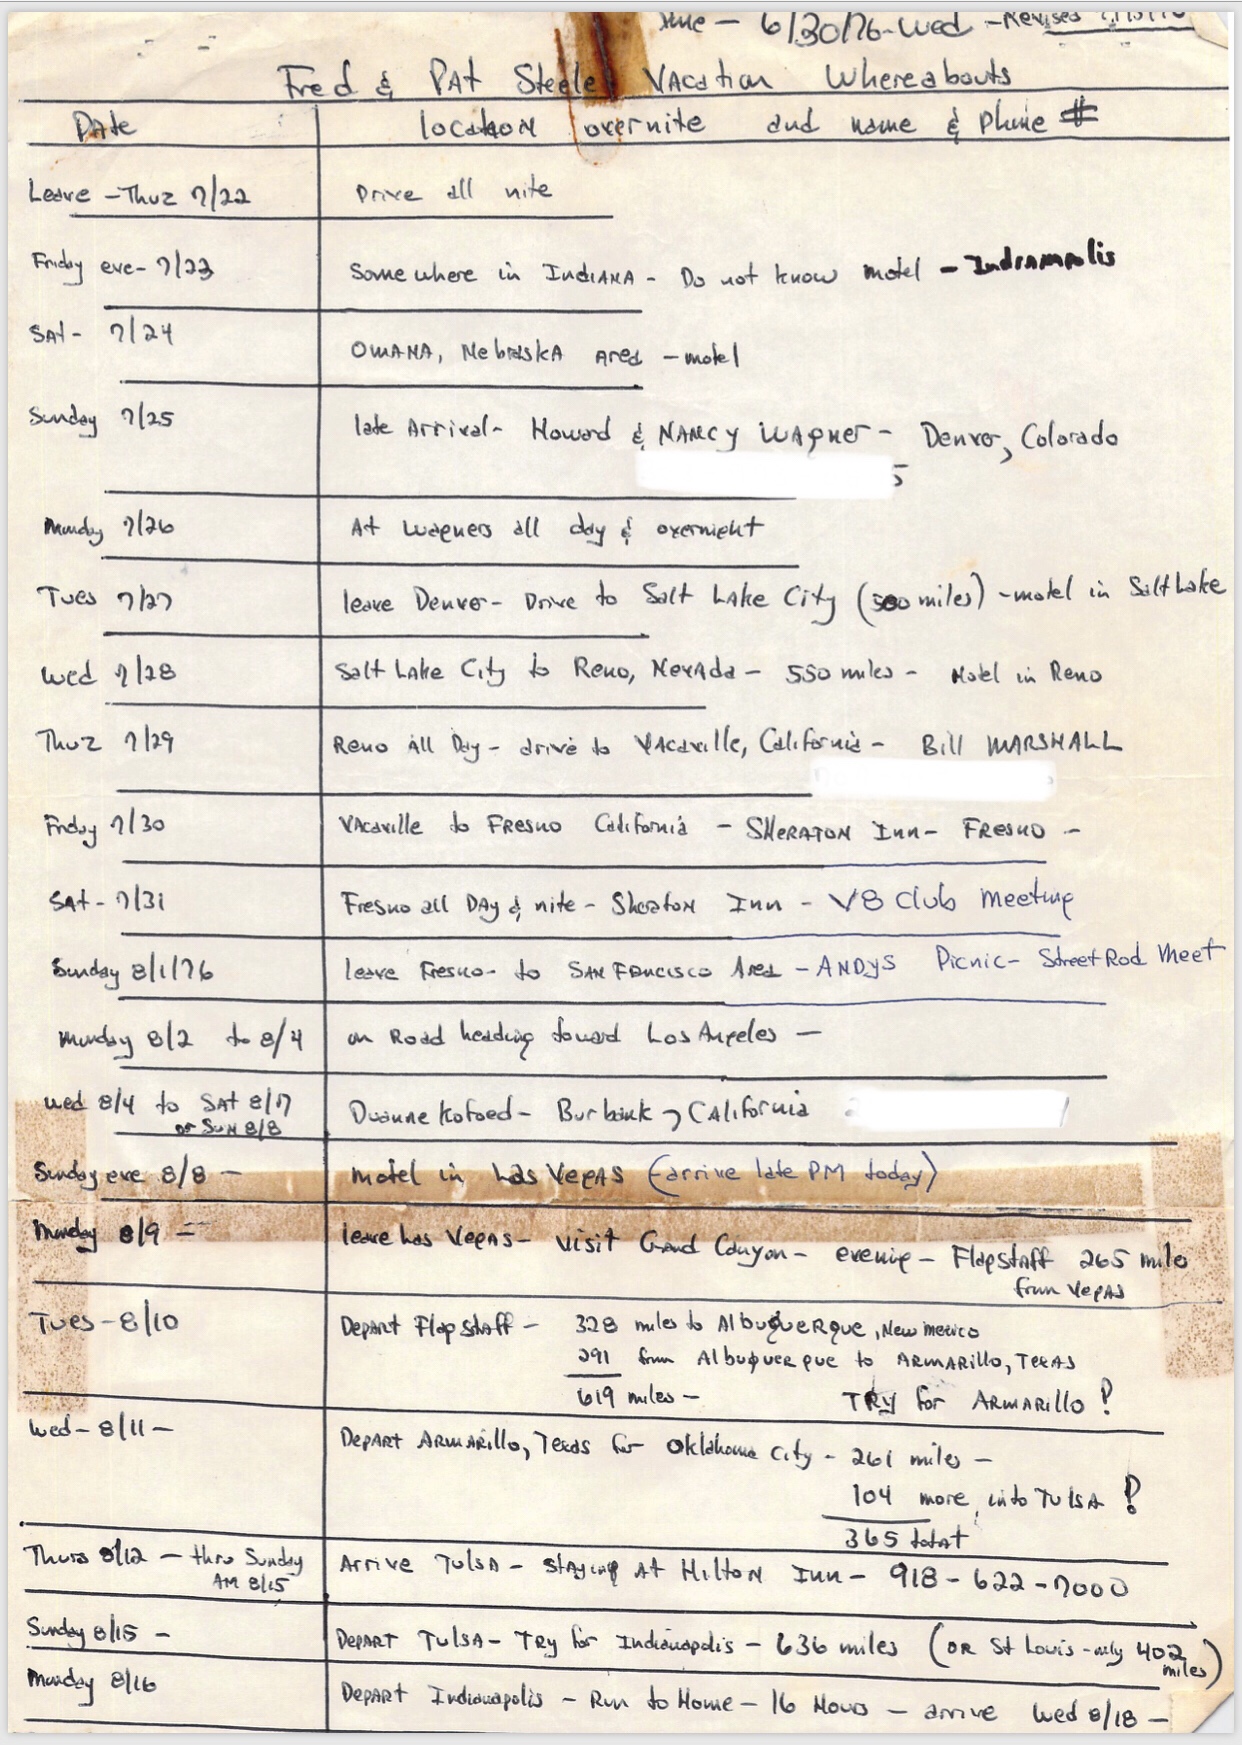 June - 6/30/76 - Wed - Revised
Fred & PAt Steele VAcation Whereabouts
DAte location overnite and name & Phone #
Leave - Thuz 7/22 Drive all nite
Friday eve - 7/23 Somewhere in INDIANA - Do not know motel - Indianapolis
SAt - 7/24 OMAHA, NebraskA Area - motel
Sunday 7/25 late Arrival - Howard & NANCY WAGNer - Denver, Colorado
5
Monday 7/26 At Wagners all day & overnight
Tues 7/27 leave Denver - Drive to Salt LAke City (500 miles) - motel in Salt Lake
Wed 7/28 Salt LAke City to Reno, NevAda - 550 miles - Motel in Reno
Thuz 7/29 Reno All Day - drive to VAcaville, California - Bill MARSHALL
Friday 7/30 VAcaville to FResno California - SHeratoN Inn - FResno -
SAt - 7/31 Fresno all DAy & nite - SheratoN Inn - V8 Club Meeting
Sunday 8/1/76 leave Fresno - to SAN FRANCISCO Area - ANDYS Picnic - Street Rod Meet
Monday 8/2 to 8/4 on Road heading toward Los Angeles -
Wed 8/4 to SAt 8/7 Duanne Kofoed - Burbank, CAlifornia
or SuN 8/8
Sunday eve 8/8 - motel in Las VegAS (arrive late PM today)
Monday 8/9 - leave Las VegAS - visit Grand Canyon - evening - Flagstaff 265 mile
from VegAS
Tues - 8/10 Depart Flagstaff - 328 miles to AlbuqueRque, New mexico
291 from Albuquerque to ARMARillo, TexAS
619 miles - TRy for ARMARillo !
Wed - 8/11 - DepART ARMARillo, Texas for Oklahoma City - 261 miles -
104 more into TulsA !
365 total
Thurs 8/12 - thru Sunday Arrive TulsA - staying At HiltoN Inn - 918 - 622 - 7000
AM 8/15
Sunday 8/15 - DepART TulsA - TRy for Indianapolis - 636 miles (OR St Louis - only 402
miles)
Monday 8/16 DepARt Indianapolis - Run to Home - 16 Hours - arrive Wed 8/18 -